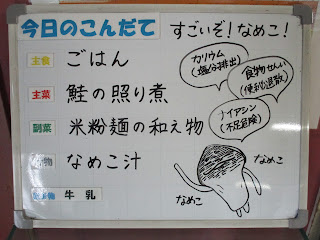 今日のこんだて
すごいぞ!なめこ!
主食 ごはん
主菜 鮭の照り煮
副菜 米粉麺の和え物
なめこ汁
牛乳
カリウム
(塩分排出)
食物せんい
(便秘退散)
ナイアシン
(不足危険)
なめこ
なめこ